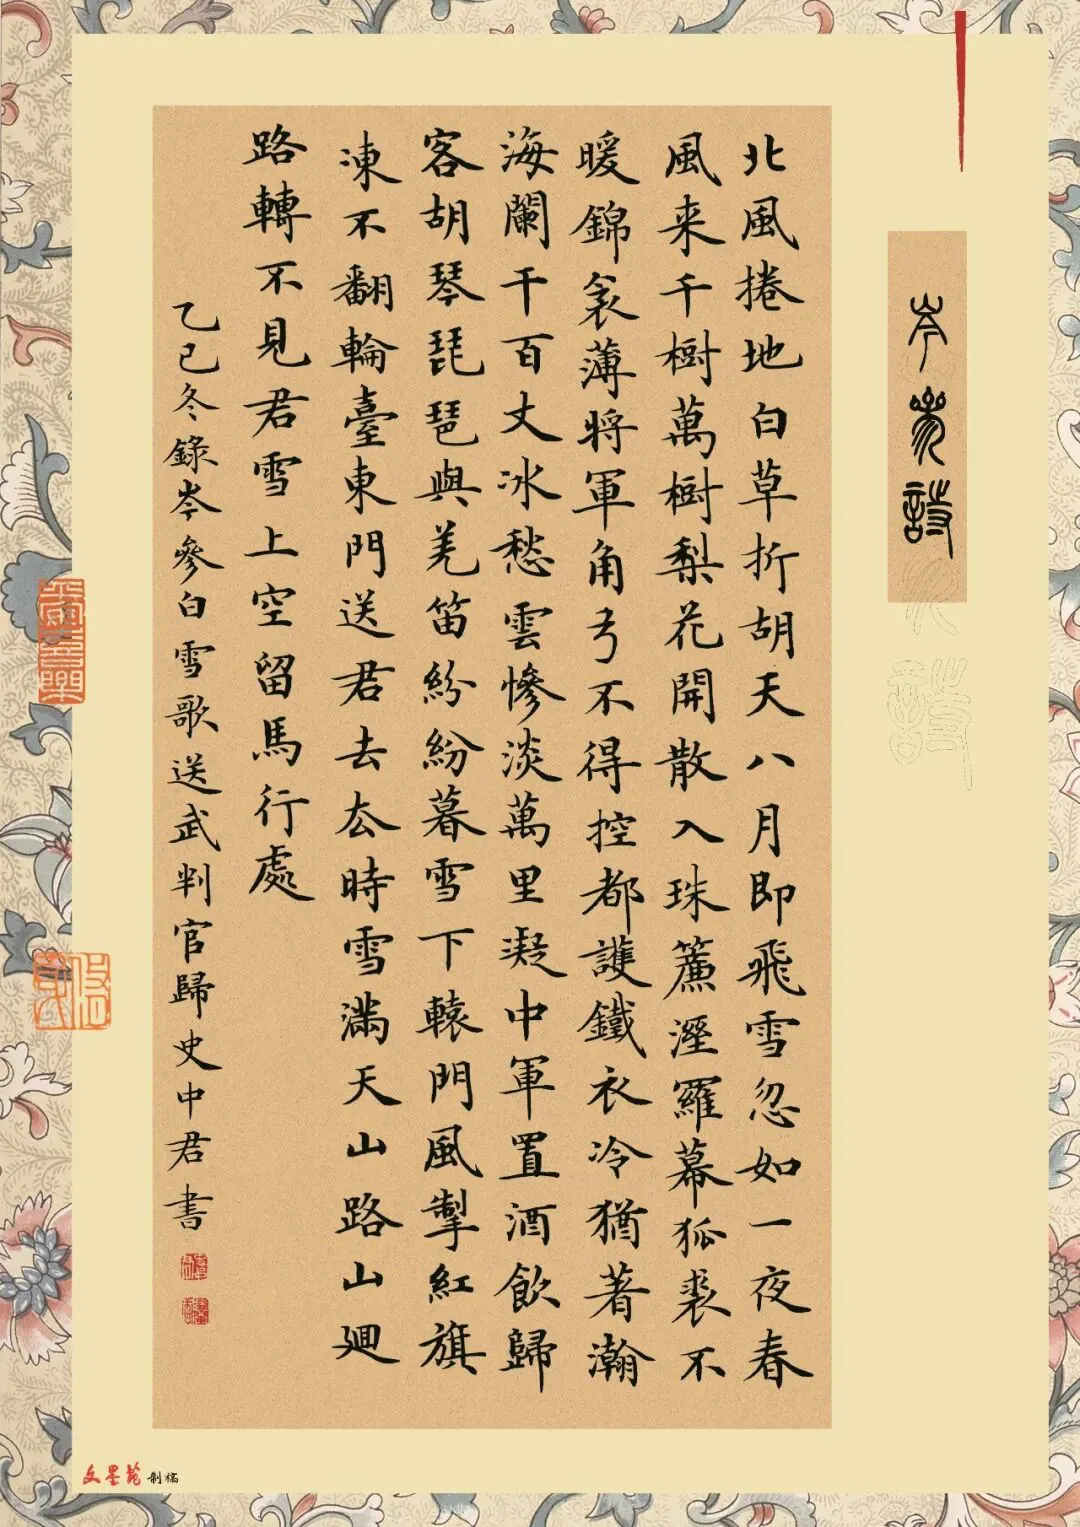 岑參詩
北風捲地白草折胡天八月即飛雪忽如一夜春
風来千樹萬樹梨花開散入珠簾溼羅幕狐裘不
暖錦衾薄將軍角弓不得控都護鐵衣冷猶著瀚
海闌干百丈冰愁雲慘淡萬里凝中軍置酒飲歸
客胡琴琵琶與羌笛紛紛暮雪下轅門風掣紅旗
凍不翻輪臺東門送君去去時雪滿天山路山廻
路轉不見君雪上空留馬行處
乙巳冬錄岑參白雪歌送武判官歸史中君書
文墨苑 制稿